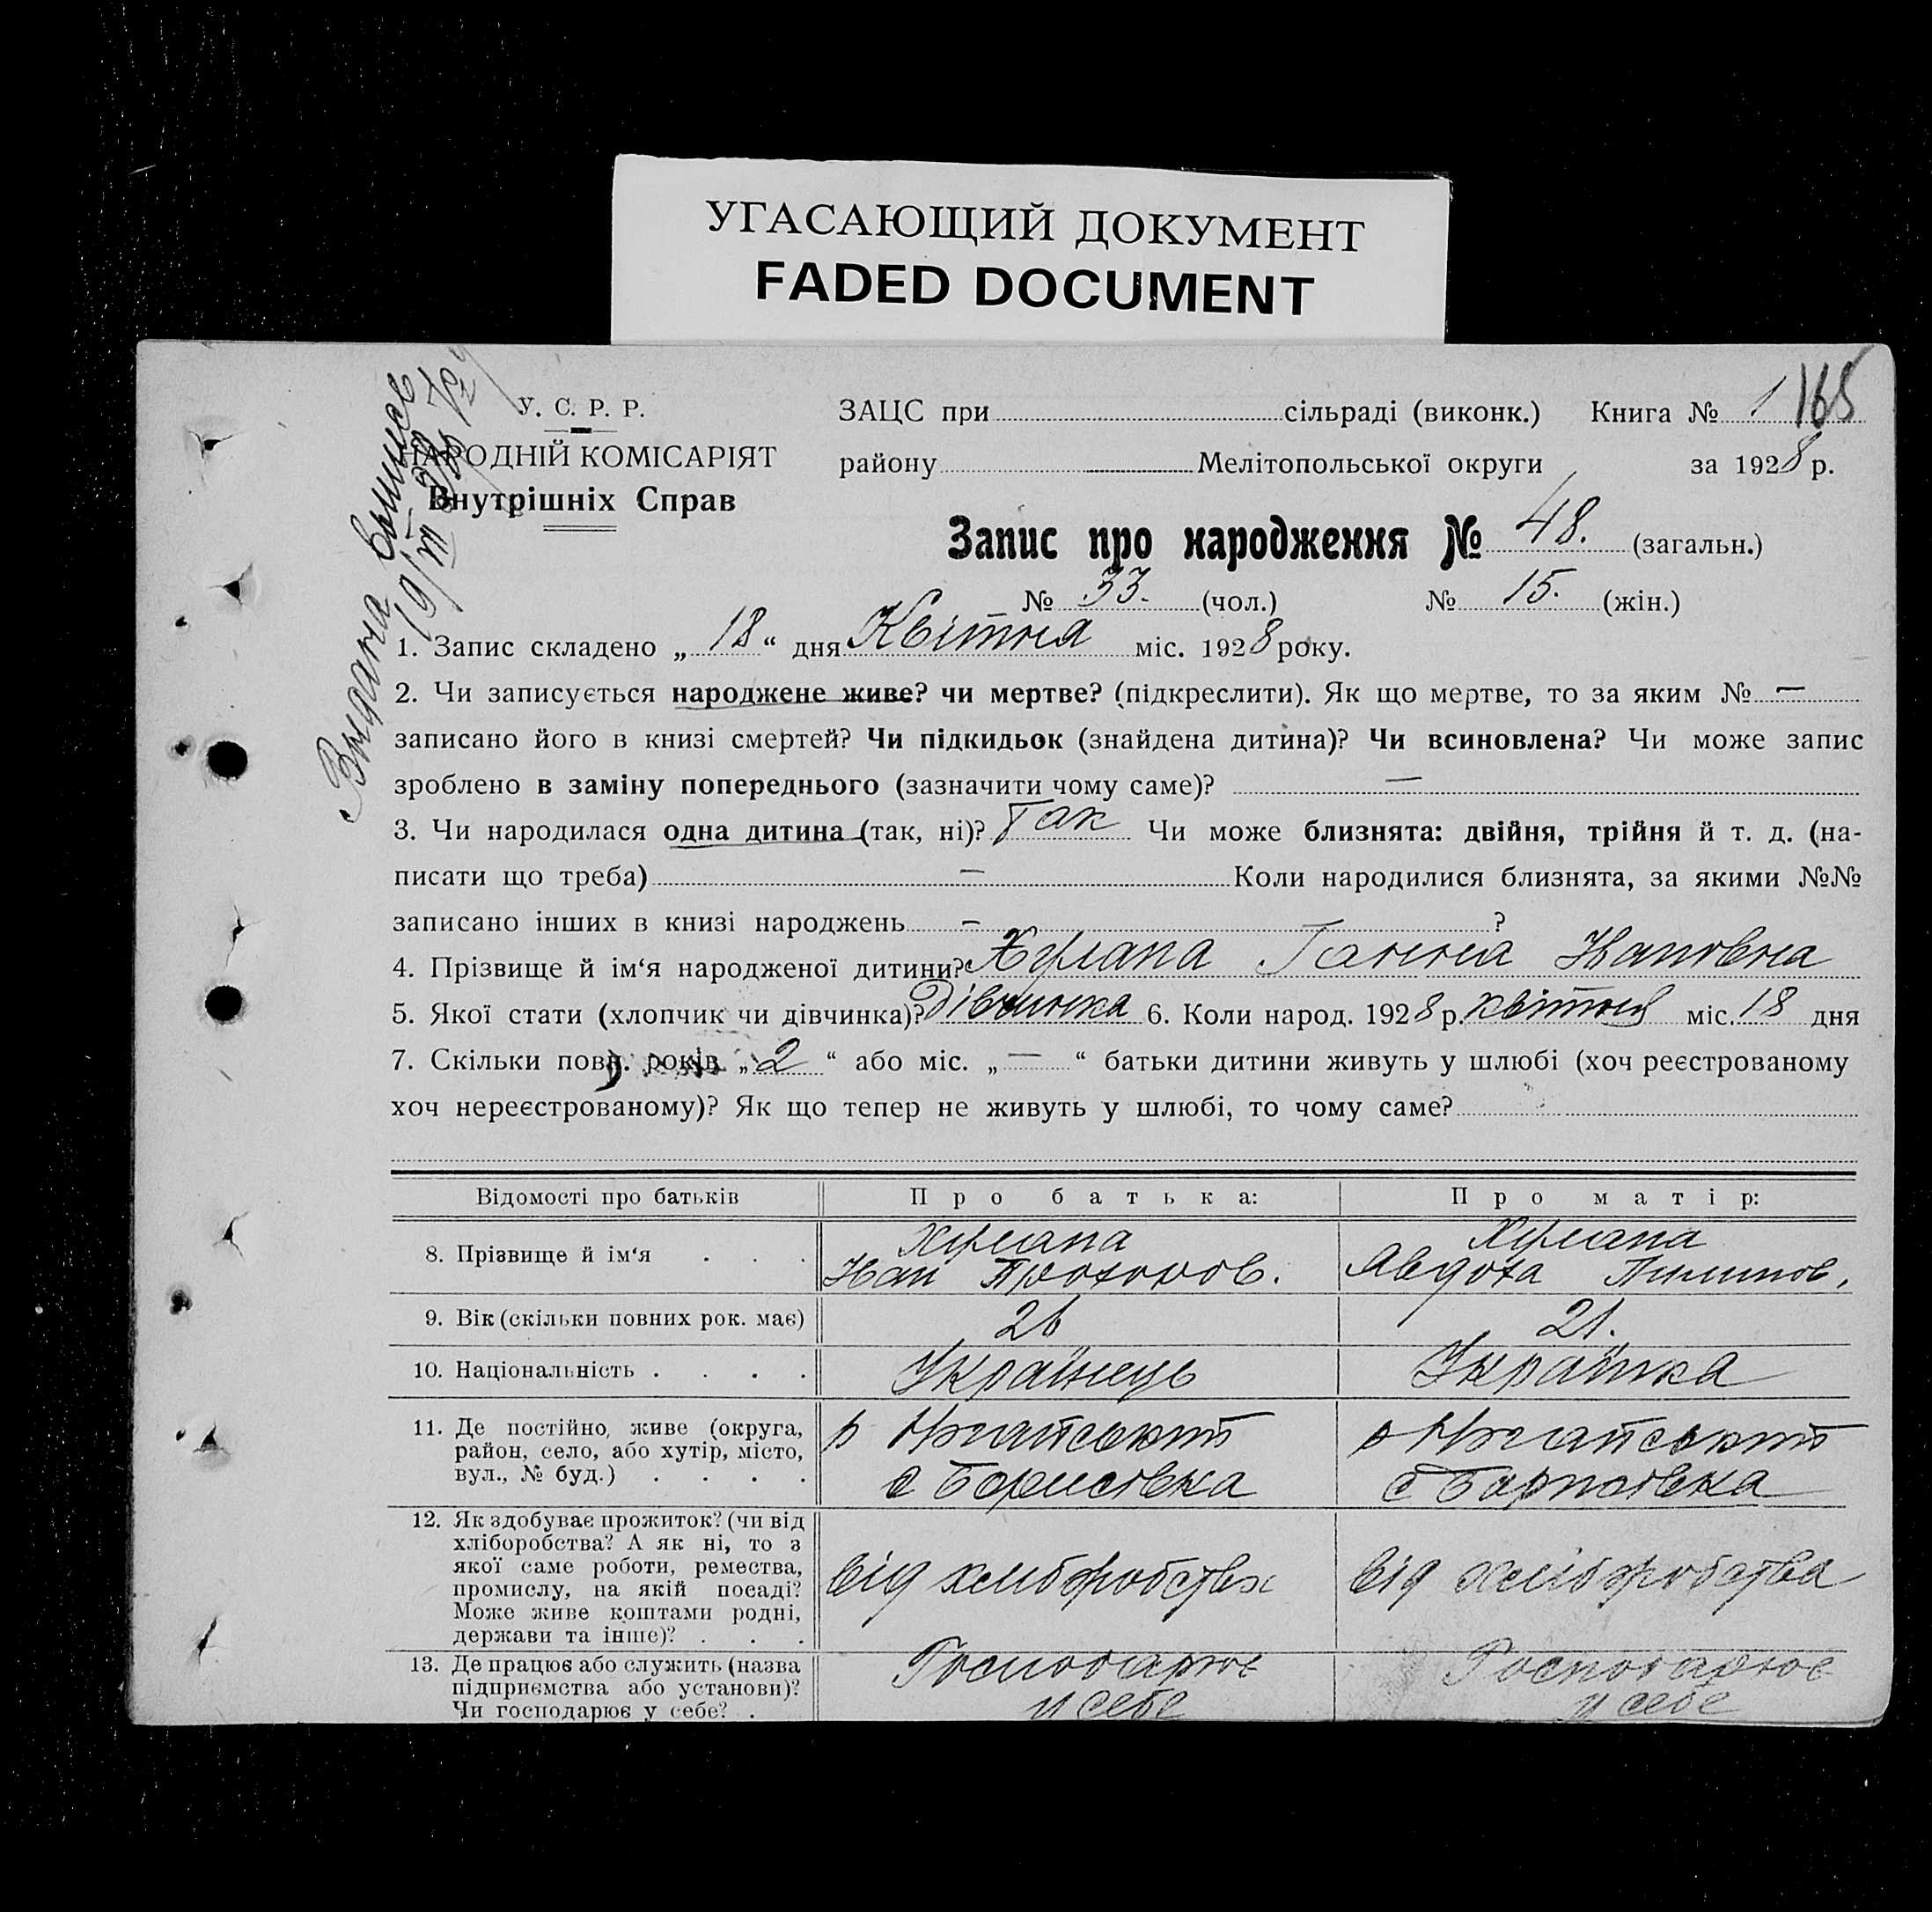 УГАСАЮЩИЙ ДОКУМЕНТ
FADED DOCUMENT
Видана выпись
У. С. Р. Р.
НАРОДНІЙ КОМІСАРІЯТ
Внутрішніх Справ
ЗАЦС при сільраді (виконк.) Книга № 1 165
району Мелітопольської округи за 1928 р.
Запис про народження № 48. (загальн.)
№ 33. (чол.) № 15. (жін.)
1. Запис складено „ 18 “ дня Квітня міс. 1928 року.
2. Чи записується народжене живе? чи мертве? (підкреслити). Як що мертве, то за яким № —
записано його в книзі смертей? Чи підкидьок (знайдена дитина)? Чи всиновлена? Чи може запис
зроблено в заміну попереднього (зазначити чому саме)? —
3. Чи народилася одна дитина (так, ні)? Так Чи може близнята: двійня, трійня й т. д. (на-
писати що треба) — Коли народилися близнята, за якими №№
записано інших в книзі народжень — ?
4. Прізвище й ім‘я народженої дитини? Ганна
5. Якої стати (хлопчик чи дівчинка)? Дівчинка 6. Коли народ. 1928 р. квітня міс. 18 дня
7. Скільки повн. років „ 2 “ або міс. „ — “ батьки дитини живуть у шлюбі (хоч реєстрованому
хоч нереєстрованому)? Як що тепер не живуть у шлюбі, то чому саме?
Відомості про батьків Про батька: Про матір:
8. Прізвище й ім‘я . . .
Авдотя
9. Вік (скільки повних рок. має) 26 21.
10. Національність . . . . Українець Українка
11. Де постійно живе (округа,
район, село, або хутір, місто,
вул., № буд.) . . . .
с Борисівка с Борисівка
12. Як здобуває прожиток? (чи від
хліборобства? А як ні, то з
якої саме роботи, ремества,
промислу, на якій посаді?
Може живе коштами родні,
держави та інше)? . . .
від хліборобства від хліборобства
13. Де працює або служить (назва
підприємства або установи)?
Чи господарює у себе? .
Господарює Господарює
у себе у себе